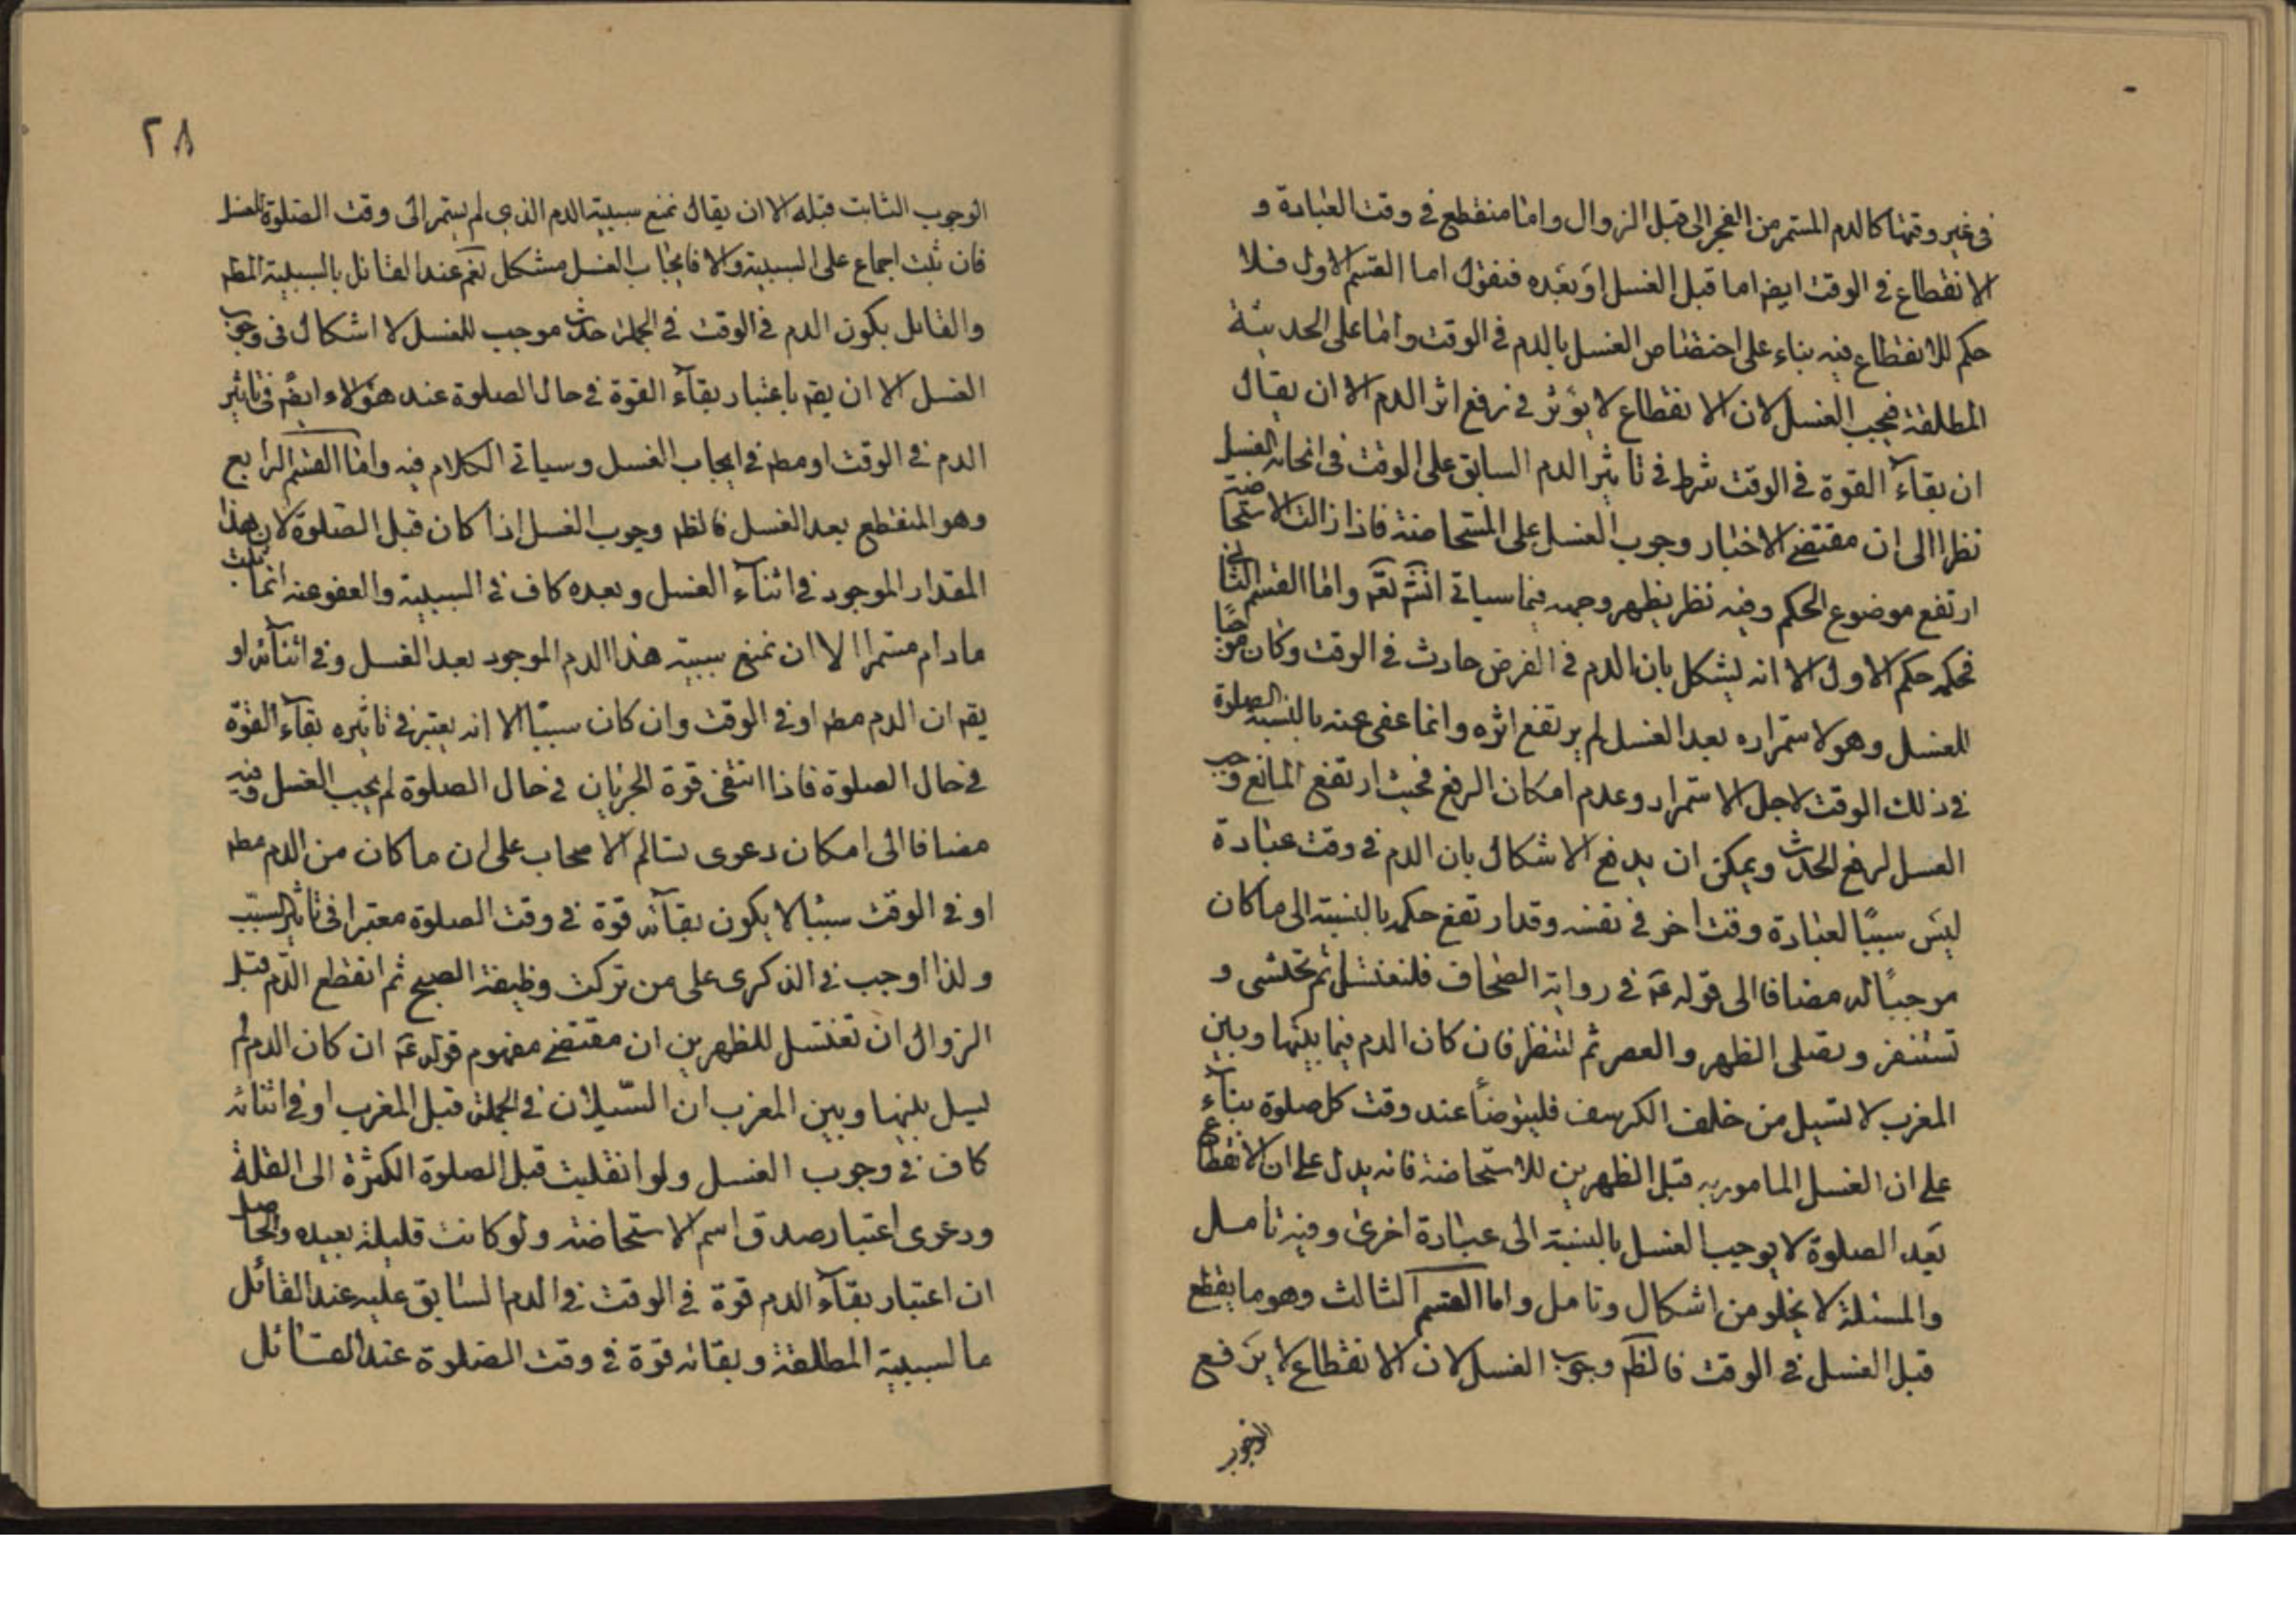 فى غير وقتها كالدم المستمر من الفجر الى قبل الزوال واما منقطع في وقت العبادة و
الانقطاع في الوقت ايضا اما قبل الغسل او بعده فنقول اما القسم الاول فلا
حكم للانقطاع فيه بناء على اختصاص الغسل بالدم في الوقت واما على الحدثية
المطلقة فيجب الغسل لان الانقطاع لا يؤثر في رفع اثر الدم الا ان يقال
ان بقاء القوة في الوقت شرط في تاثير الدم السابق على الوقت فى ايجابه الغسل
نظرا الى ان مقتضى الاخبار وجوب الغسل على المستحاضة فاذا زالت الاستحاضة
ارتفع موضوع الحكم وفيه نظر يظهر وجهه فيما سياتى انشَ تعَم واما القسم الثانى
فحكمه حكم الاول الا انه يشكل بان الدم في الفرض حادث في الوقت وكان موجبًا
للغسل وهو لاستمراره بعد الغسل لم يرتفع اثره وانما عفى عنه بالنسبة الصلوة
في ذلك الوقت لاجل الاستمرار وعدم امكان الرفع فحيث ارتفع المانع وجب
الغسل لرفع الحدث ويمكن ان يدفع الاشكال بان الدم في وقت عبادة
ليس سببًا لعبادة وقت اخر في نفسه وقد ارتفع حكمه بالنسبة الى ما كان
موجبًا له مضافا الى قوله عَ في رواية الصحاف فلتغتسل ثم تحتشى و
تستثفر وتصلى الظهر والعصر ثم لتنظر فان كان الدم فيما بينها وبين
المغرب لا تسيل من خلف الكرسف فليتوضأ عند وقت كل صلوة بناء
على ان الغسل المامور به قبل الظهرين للاستحاضة فانه يدل على ان الانقطاع
بعد الصلوة لا يوجب الغسل بالنسبة الى عبادة اخرى وفيه تامل
والمسئلة لا يخلو من اشكال وتامل واما القسم الثالث وهو ما يقطع
قبل الغسل في الوقت فالظَم وجوب الغسل لان الانقطاع لا يرفع
الوجوب
٢٨
الوجوب الثابت قبله الا ان يقال نمنع سببية الدم الذي لم يستمر الى وقت الصلوة للغسل
فان ثبت اجماع على السببية والا فايجاب الغسل مشكل نعم عند القائل بالسببية المطم
والقائل بكون الدم في الوقت في الجملة حدث موجب للغسل لا اشكال فى وجوب
الغسل الا ان يقم باعتبار بقاء القوة في حال الصلوة عند هؤلاء ايضم في تاثير
الدم في الوقت او مطم في ايجاب الغسل وسياتى الكلام فيه واما القسم الرابع
وهو المنقطع بعد الغسل فالظم وجوب الغسل اذا كان قبل الصلوة لان هذا
المقدار الموجود في اثناء الغسل وبعده كاف في السببية والعفو عنه انما ثبت
مادام مستمرا الا ان نمنع سببية هذا الدم الموجود بعد الغسل وفي اثنائه او
يقم ان الدم مطم او في الوقت وان كان سببًا الا انه يعتبر في تاثيره بقاء القوة
في حال الصلوة فاذا انتفى قوة الجريان في حال الصلوة لم يجب الغسل وفيه
مضافا الى امكان دعوى تسالم الاصحاب على ان ما كان من الدم مطم
او في الوقت سببا لا يكون بقائه قوة في وقت الصلوة معتبرا فى تاثير السبب
ولذا اوجب في الذكرى على من تركت وظيفة الصبح ثم انقطع الدم قبل
الزوال ان تغتسل للظهرين ان مقتضى مفهوم قوله عَ ان كان الدم لم
يسيل بينها وبين المغرب ان السّيلان في الجملة قبل المغرب او في اثنائه
كاف في وجوب الغسل ولو انقلبت قبل الصلوة الكثرة الى القلة
ودعوى اعتبار صدق اسم الاستحاضة ولو كانت قليلة بعيده والحاصل
ان اعتبار بقاء الدم قوة في الوقت في الدم السابق عليه عند القائل
بالسببية المطلقة وبقائه قوة في وقت الصلوة عند القائل